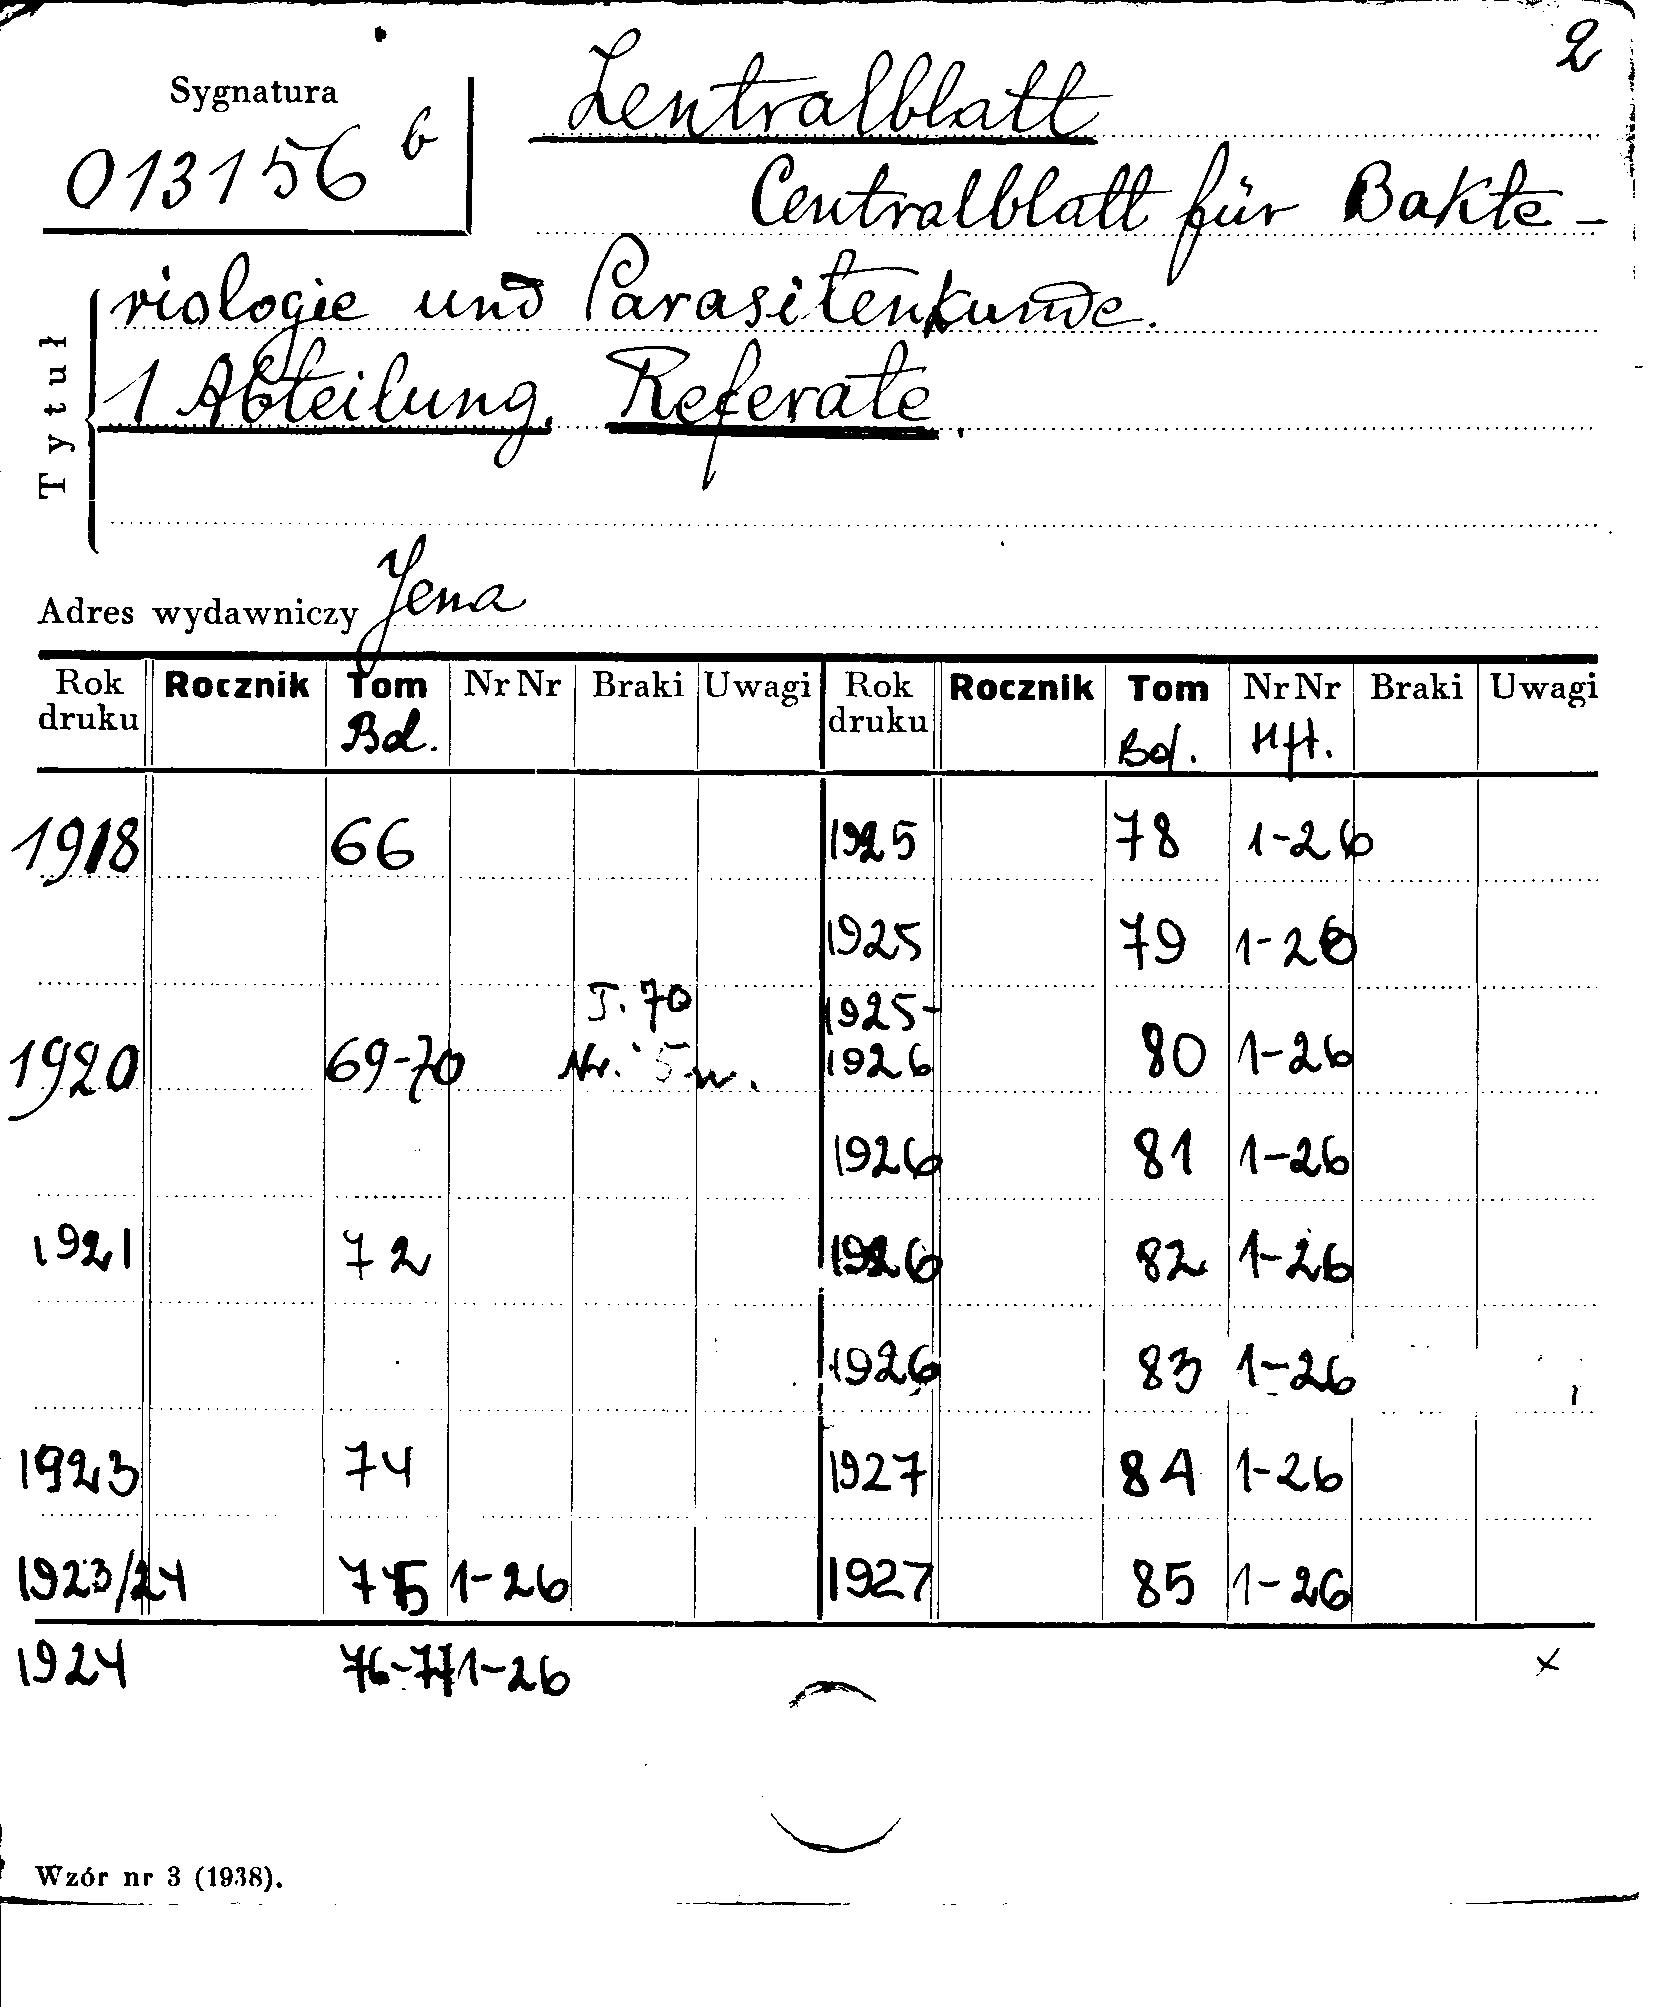 2
Sygnatura
013156 b
Zentralblatt
Centralblatt für Bakte-
riologie und Parasitenkunde.
1 Abteilung. Referate.
Tytuł
Adres wydawniczy Jena
Rok druku Rocznik Tom Nr Nr Braki Uwagi Rok druku Rocznik Tom Nr Nr Braki Uwagi
Bd. Bd. Hft.
1918 66 1925 78 1-26
1925 79 1-26
1920 69-70 T. 70 Nr. 5 1925-1926 80 1-26
1926 81 1-26
1921 72 1926 82 1-26
1926 83 1-26
1923 74 1927 84 1-26
1923/24 75 1-26 1927 85 1-26
1924 76-77 1-26 x
Wzór nr 3 (1938).